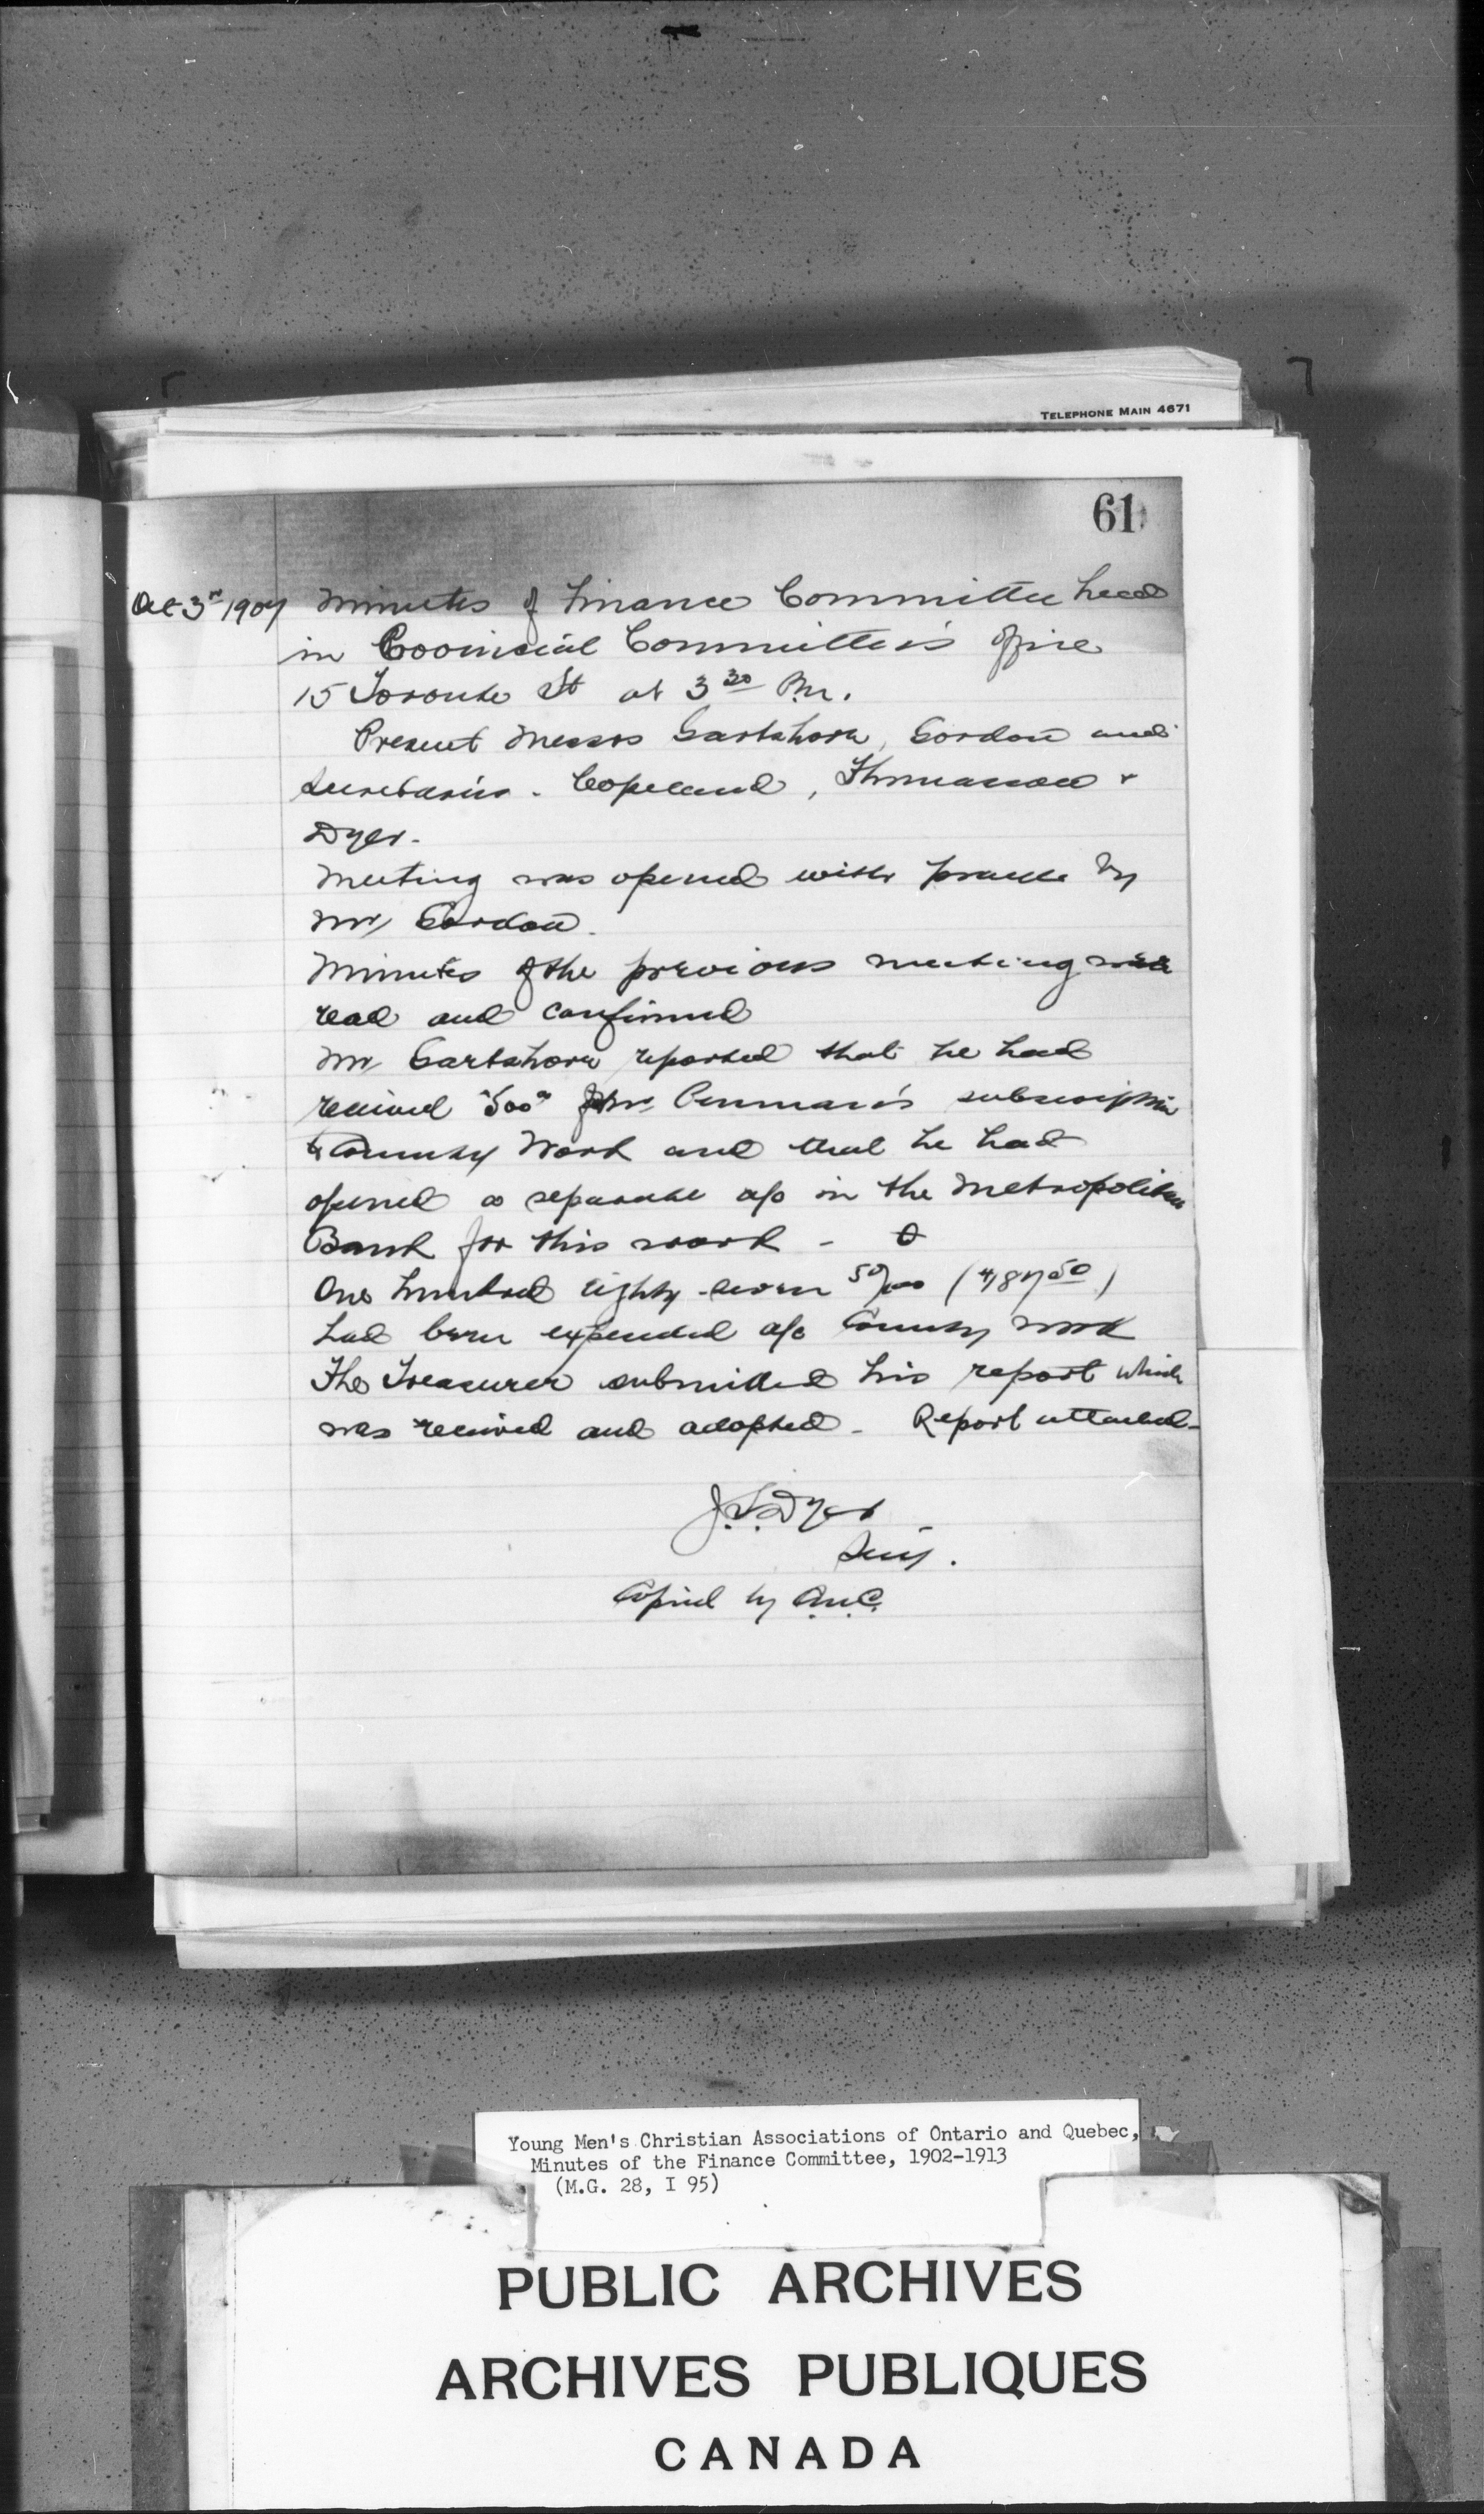 TELEPHONE MAIN 4671
61
Oct 3rd 1907 Minutes of Finance Committee held
in Provincial Committee's office
15 Toronto St at 3 30 P.m.
Present Messrs Gartshore, Gordon and
Secretaries - Copeland, &
Dyer.
Meeting was opened with prayer by
Mr Gordon.
Minutes of the previous meeting were
read and confirmed
Mr Gartshore reported that he had
received $500 00 Mr. Penman's subscription
to County Work and that he had
opened a separate a/c in the Metropolitan
Bank for this work -
One hundred eighty-seven 50/100 ($187 50)
had been expended a/c County work
The Treasurer submitted his report which
was received and adopted - Report attached -
J.S. Dyer
Secy.
Copied by
Young Men's Christian Associations of Ontario and Quebec,
Minutes of the Finance Committee, 1902-1913
(M.G. 28, I 95)
PUBLIC ARCHIVES
ARCHIVES PUBLIQUES
CANADA